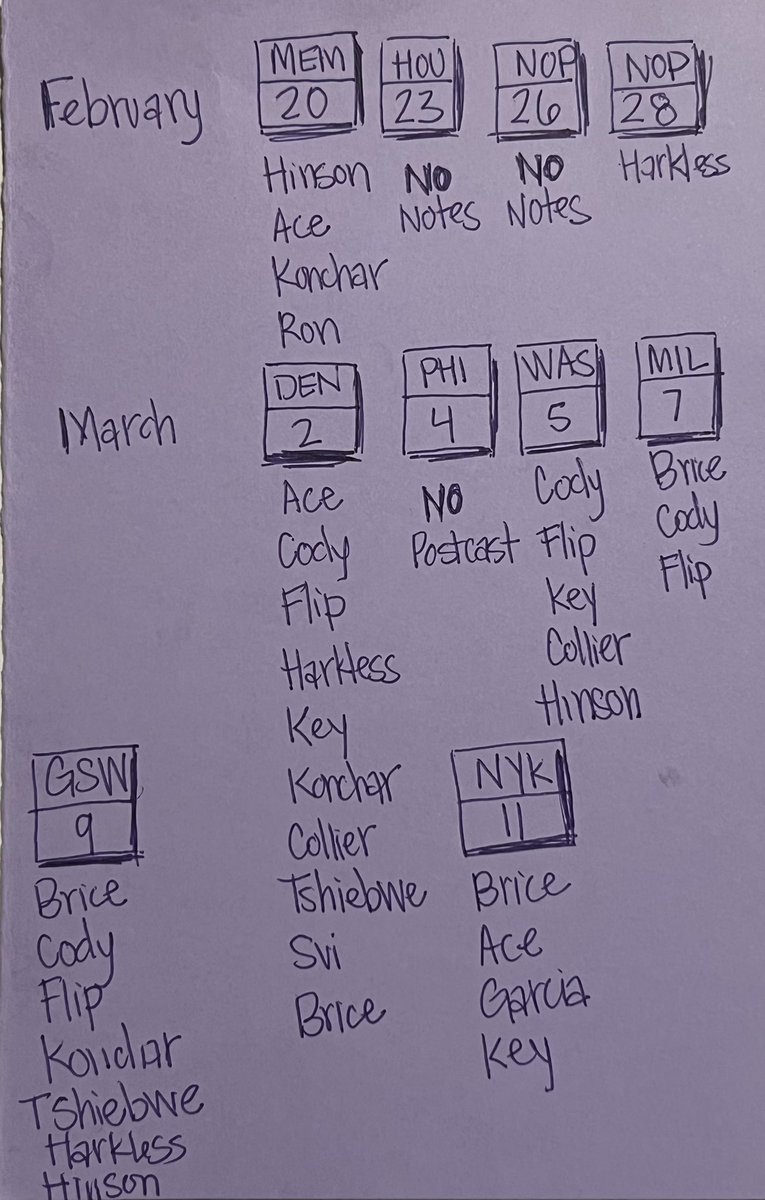 February
MEM
20
Hinson
Ace
Konchar
Ron
HOU
23
NO
Notes
NOP
26
NO
Notes
NOP
28
Harkless
March
DEN
2
Ace
Cody
Flip
Harkless
Key
Konchar
Collier
Tshiebwe
Svi
Brice
PHI
4
NO
Postcast
WAS
5
Cody
Flip
Key
Collier
Hinson
MIL
7
Brice
Cody
Flip
GSW
9
Brice
Cody
Flip
Konchar
Tshiebwe
Harkless
Hinson
NYK
11
Brice
Ace
Garcia
Key